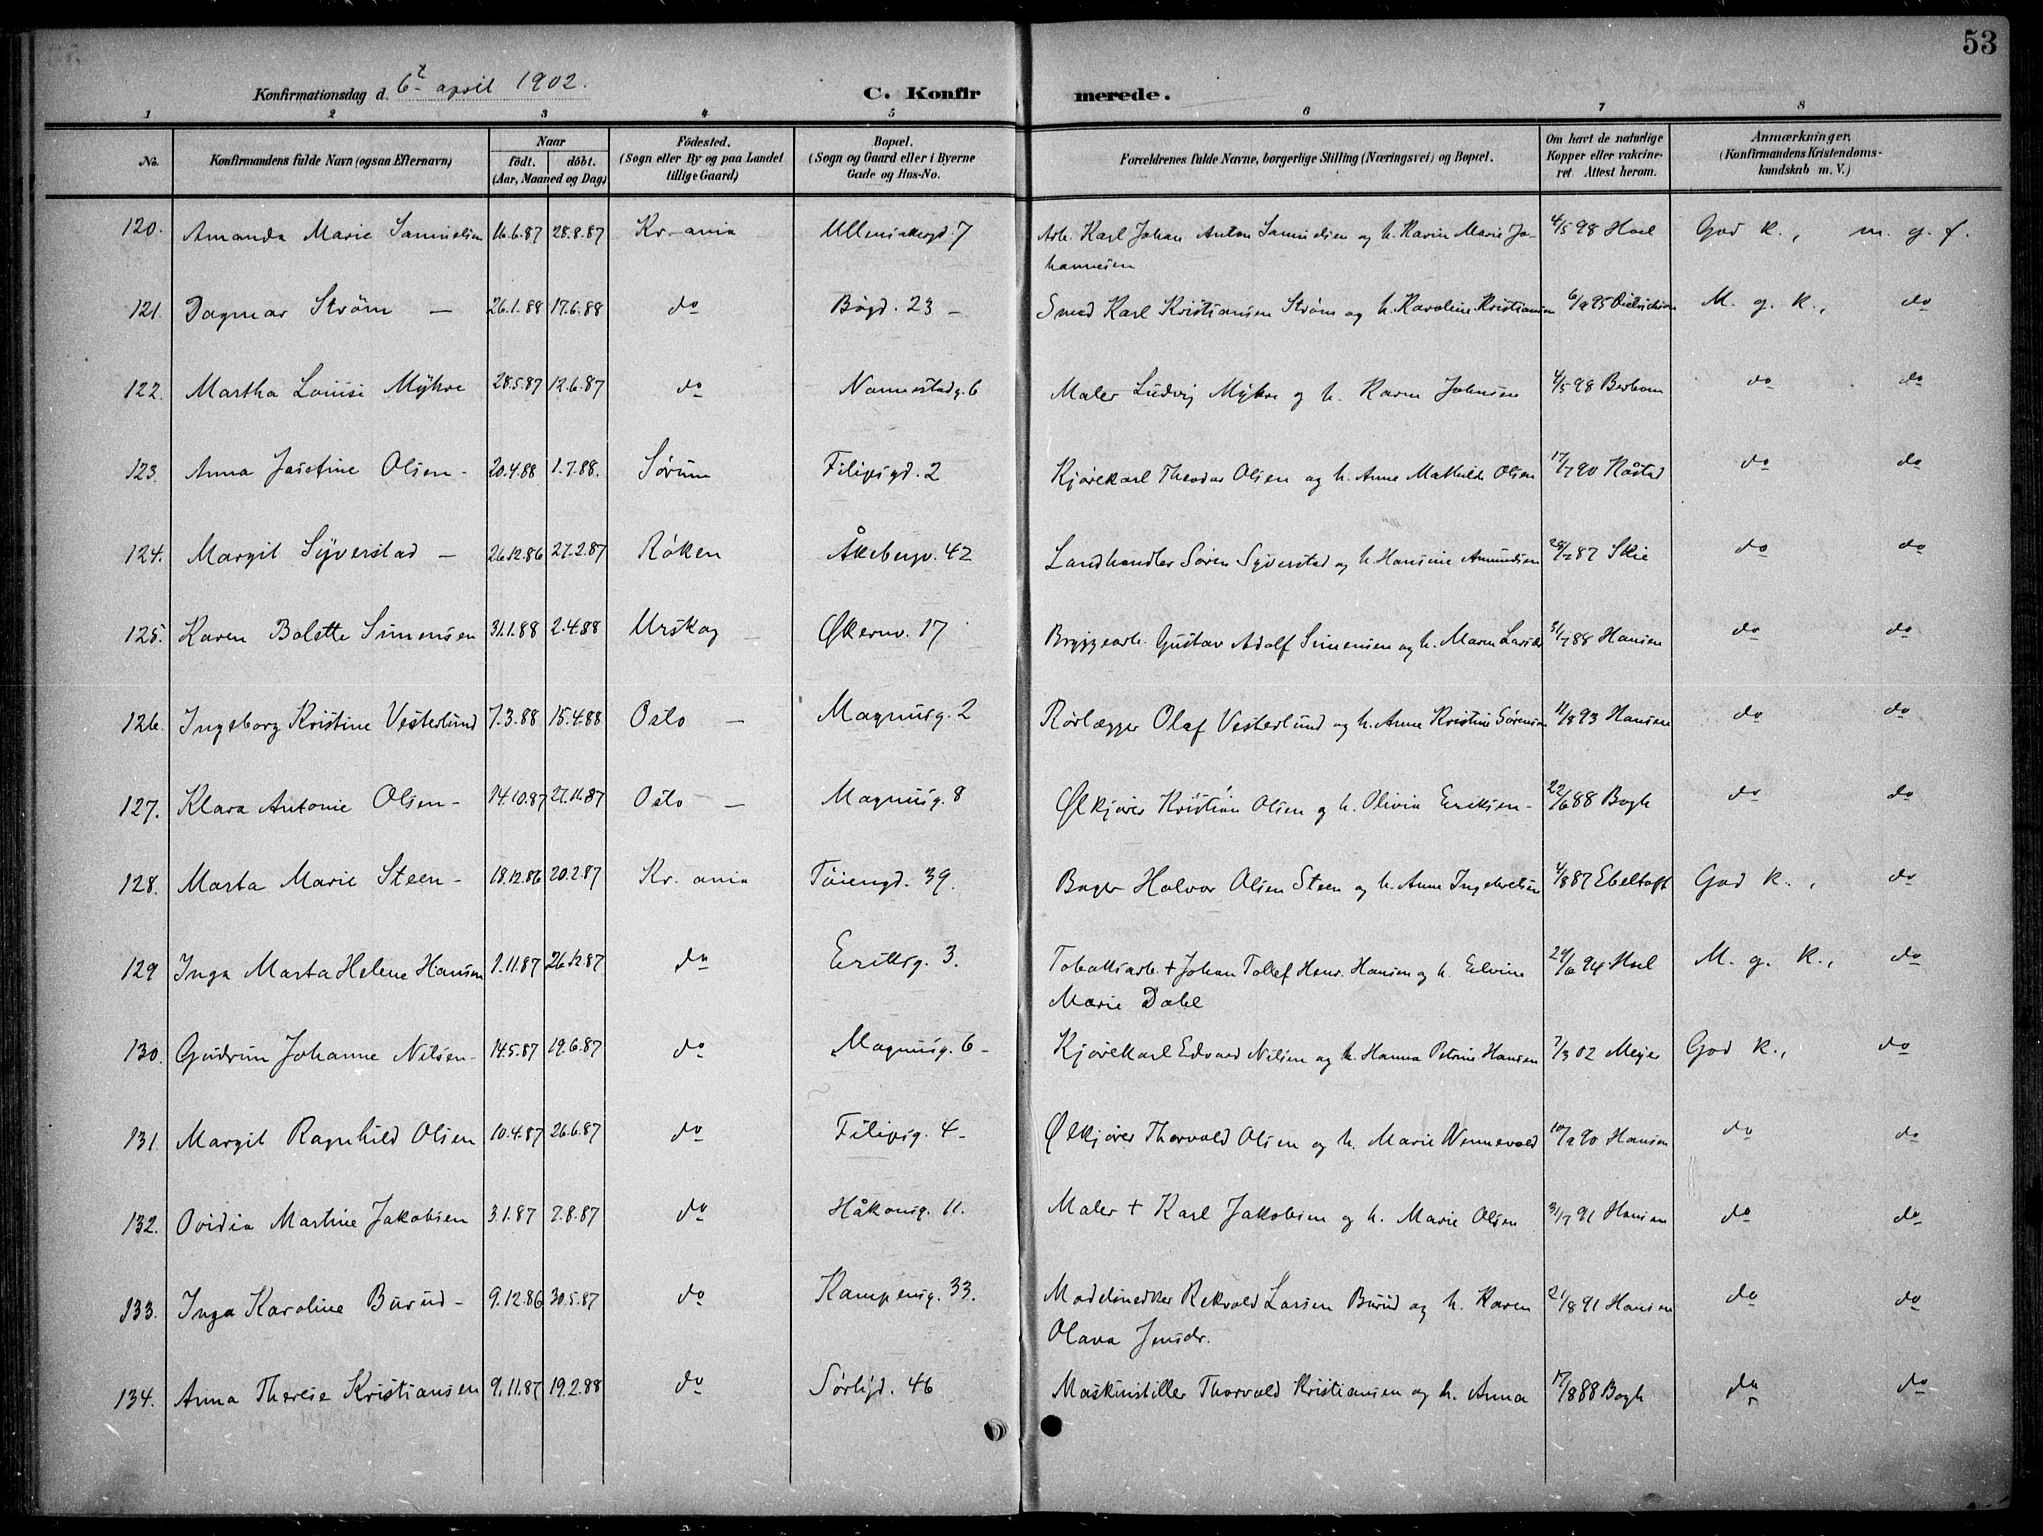 53
Konfirmationsdag d. 6t april 1902. C. Konfirmerede.
1 2 3 4 5 6 7 8
No. Konfirmandens fulde Navn (ogsaa Efternavn) Naar født. døbt. (Aar, Maaned og Dag) Fødested. (Sogn eller By og paa Landet tillige Gaard) Bopæl. (Sogn og Gaard eller i Byerne Gade og Hus-No. Forældrenes fulde Navne, borgerlige Stilling (Næringsvei) og Bopæl. Om havt de naturlige Kopper eller vakcineret Attest herom. Anmærkninger. (Konfirmandens Kristendomskundskab m. V.)
120. Amanda Marie Samuelsen 16.6.87 28.8.87 Kr.ania 7 Arb. Karl Johan Anton Samuelsen og h. Karin Marie Jo- 4/5 98 Hoel God k., m. g. f.
hannesen
121. Dagmar Strøm — 26.1.88 17.6.88 do Bøgd. 23 — Smed Karl Kristiansen Strøm og h. Karoline Kristiansen 6/9 95 do M. g. k., do
122. Martha Louise Myhre 28.5.87 12.6.87 do Nannestadg. 6 Maler Ludvig Myhre og h. Karen Johnsen 4/5 98 do do
123. Anna Justine Olsen - 20.4.88 1.7.88. Sørum Filipsgd. 2 Kjørekarl Theodor Olsen og h. Anne Mathilde Olsen 17/7 90 Råsted do do
124. Margit Syverstad — 26.12.86 27.2.87 Røken Åkebergv. 42 Landhandler Søren Syverstad og h. Hansine Amundsen 87 Skie do do
125. Karen Bolette Simensen 31.1.88 2.4.88 Urskog — Økernv. 17 Bryggearb. Gustav Adolf Simensen og h. Maren Larsdr 31/7 88 Hansen do do
126. Ingeborg Kristine Vesterlund 7.3.88 15.4.88 Oslo — Magnusg. 2 Rørlægger Olaf Vesterlund og h. Anne Kristine Sørensen 11/8 93 Hansen do do
127. Klara Antonie Olsen - 14.10.87 27.11.87 Oslo — Magnusg. 8 Ølkjører Kristian Olsen og h. Olivia Eriksen - 22/6 88 Bogh do do
128. Marta Marie Steen - 18.12.86 20.2.87 Kr. ania Tøiengd. 39. Bager Halvor Olsen Steen og h. Anne Ingebretsen 4/8 87 Ebeltoft God k., do
129 Inga Marta Helene Hansen 1.11.87 26.12.87 do Eriksg. 3. Tobaksarb. + Johan Tollef Henr. Hansen og h. Elvine 29/6 94 Hoel M. g. k., do
Marie Dahl
130. Gudrun Johanne Nilsen - 14.5.87 19.6.87 do Magnusg. 6 - Kjørekarl Edvard Nilsen og h. Hanna Petrine Hansen 7/3 02 Meyer God k., do
131. Margit Ragnhild Olsen 10.4.87 26.6.87 do Filipsg. 4 - Ølkjører Thorvald Olsen og h. Marie Wennevold 10/9 90 Hansen do do
132. Ovidia Martine Jakobsen 3.1.87 7.8.87 do Håkonsg. 11. Maler + Karl Jakobsen og h. Marie Olsen 31/7 91 Hansen do do
133. Inga Karoline Burud - 9.12.86 30.5.87 do Kampensg. 33. Modelsnedker Rikvald Larsen Burud og h. Karen 21/8 91 Hansen do do
Olava Jensdr.
134. Anna Therese Kristiansen 9.11.87 19.2.88 do Sørligd. 46 Maskinstiller Thorvald Kristiansen og h. Anna 17/8 88 Bogh do do